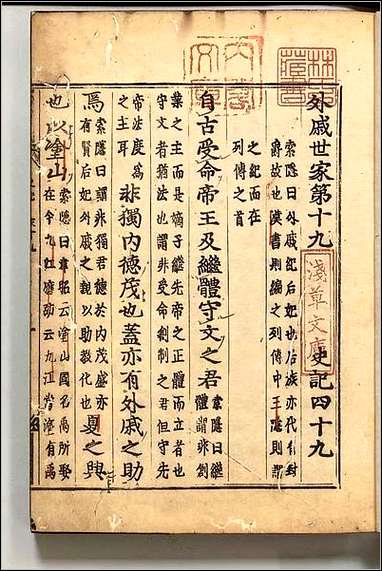 外戚世家第十九
史記四十九
淺草文庫
索隱曰外戚紀后妃也后族亦代有封
爵故也漢書則編之列傳中王隱則謂
之紀而在
列傳之首
自古受命帝王及繼體守文之君
索隱曰繼
體謂非創
業之主而是嫡子繼先帝之正體而立者也
守文者猶法也謂非受命創制之君但守先
帝法度為
之主耳
非獨内德茂也蓋亦有外戚之助
焉
索隱曰謂非獨君德於内茂盛亦
有賢后妃外戚之親以助教化也
夏之興
也以塗山
索隱曰韋昭云塗山國名禹所娶
在今九江應劭云九江當塗有禹